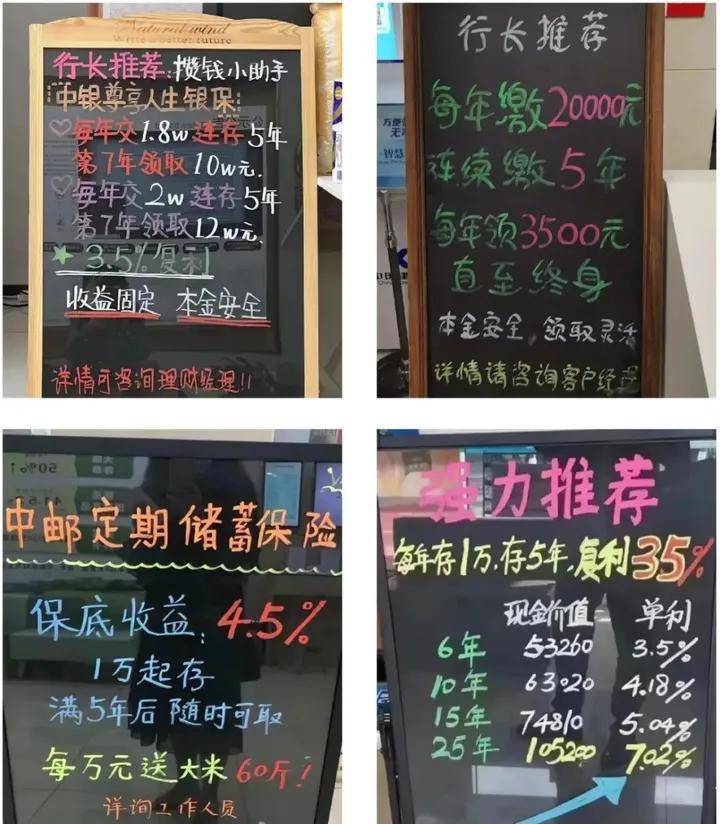 Natural wind
Write a better future
行长推荐:攒钱小助手
中银尊享人生银保
每年交1.8w连存5年
第7年领取10w元.
每年交2w连存5年
第7年领取12w元.
3.5%复利
收益固定 本金安全
详情可咨询理财经理!!
行长推荐
每年缴20000元
连续缴5年
每年领3500元
直至终身
本金安全 领取灵活
详情请咨询客户经理
中邮定期储蓄保险
保底收益:4.5%
1万起存
满5年后随时可取
每万元送大米60斤!
详询工作人员
强力推荐
每年存1万,存5年,复利35%
现金价值 单利
6年 53260 3.5%
10年 63020 4.18%
15年 74810 5.04%
25年 105200 7.02%